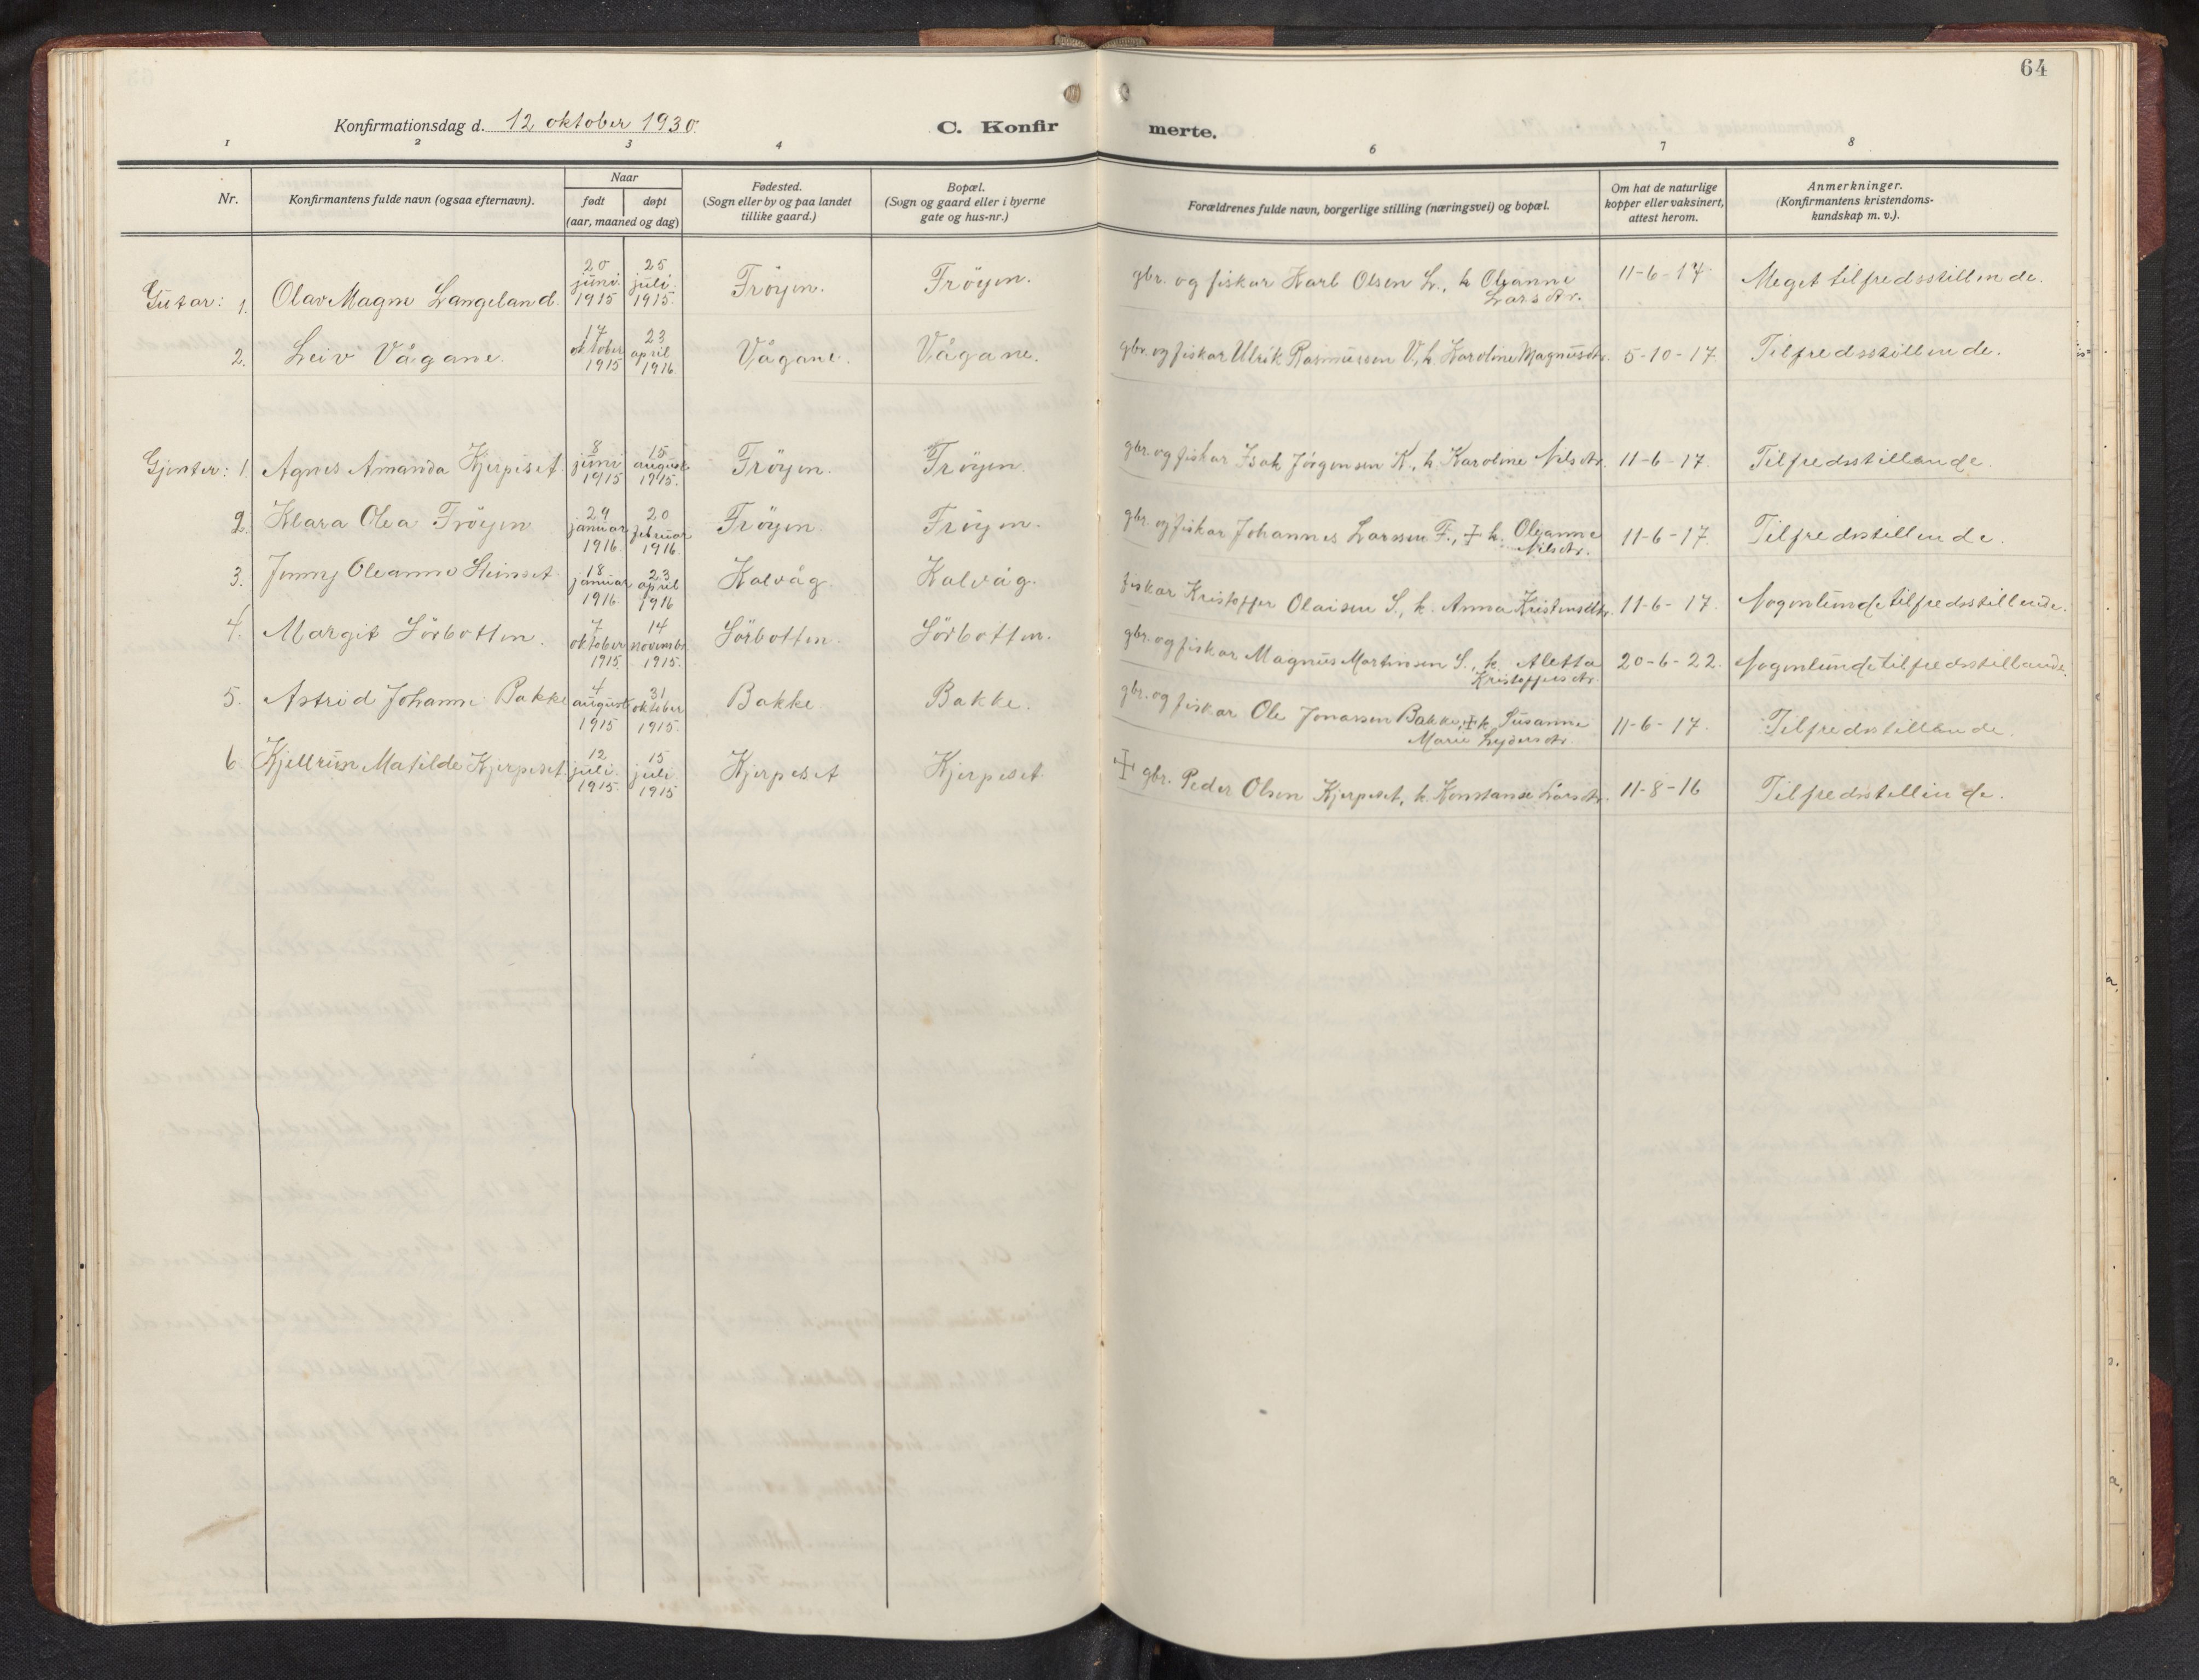 64
Konfirmationsdag d. 12 oktober 1930.
C. Konfirmerte.
1 2 3 4 6 7 8
Nr. Konfirmantens fulde navn (ogsaa efternavn). Naar født døpt (aar, maaned og dag) Fødested. (Sogn eller by og paa landet tillike gaard.) Bopæl. (Sogn og gaard eller i byerne gate og hus-nr.) Forældrenes fulde navn, borgerlige stilling (næringsvei) og bopæl. Om hat de naturlige kopper eller vaksinert, attest herom. Anmerkninger. (Konfirmantens kristendoms-kundskap m. v.).
Gutar: 1. Olav Magne Langeland. 20 juni 1915 25 juli 1915. Fröyen. Fröyen. gbr. og fiskar Karl Olsen L., h. Oleanne Larsdtr. 11-6-17 Meget tilfredsstillende.
2. Leiv Vågane. 17 oktober 1915 23 april 1916. Vågane. Vågane. gbr. og fiskar Ulrik Rasmussen V., h. Karoline Magnusdtr. 5-10-17. Tilfredsstillende.
Gjenter: 1. Agnes Amanda Kjerpeset 8 juni 1915 15 august 1915. Fröyen. Fröyen. gbr. og fiskar Isak Jörgensen K., h. Karoline Nilsdtr. 11-6-17. Tilfredsstillande.
2. Klara Olea Fröyen 29 januar 1916. 20 februar 1916. Fröyen. Fröyen. gbr. og fiskar Johannes Larssen F., + h. Oleanne Nilsdtr. 11-6-17. Tilfredsstillende.
3. Jenny Oleanna Heimset 18 januar 1916 23 april 1916 Kalvåg. Kalvåg. fiskar Kristoffer Olaisen S., h. Anna Kristensdtr. 11-6-17. Nogenlunde tilfredsstillende.
4. Margit Sörbotten. 7 oktober 1915 14 novembr. 1915. Sörbotten. Sörbotten. gbr. og fiskar Magnus Martinsen S., h. Aletta Kristoffersdtr. 20-6-22. Nogenlunde tilfredsstillande.
5. Astrid Johanne Bakke 4 august 1915 31 oktober 1915. Bakke Bakke. gbr. og fiskar Ole Jonassen Bakke, + h. Susanne Marie Lydersdtr. 11-6-17. Tilfredsstillande.
6. Kjellrun Matilde Kjerpeset 12 juli 1915. 15 juli 1915 Kjerpeset Kjerpeset + gbr. Peder Olsen Kjerpeset, h. Konstanse Larsdtr. 11-8-16 Tilfredsstillende.